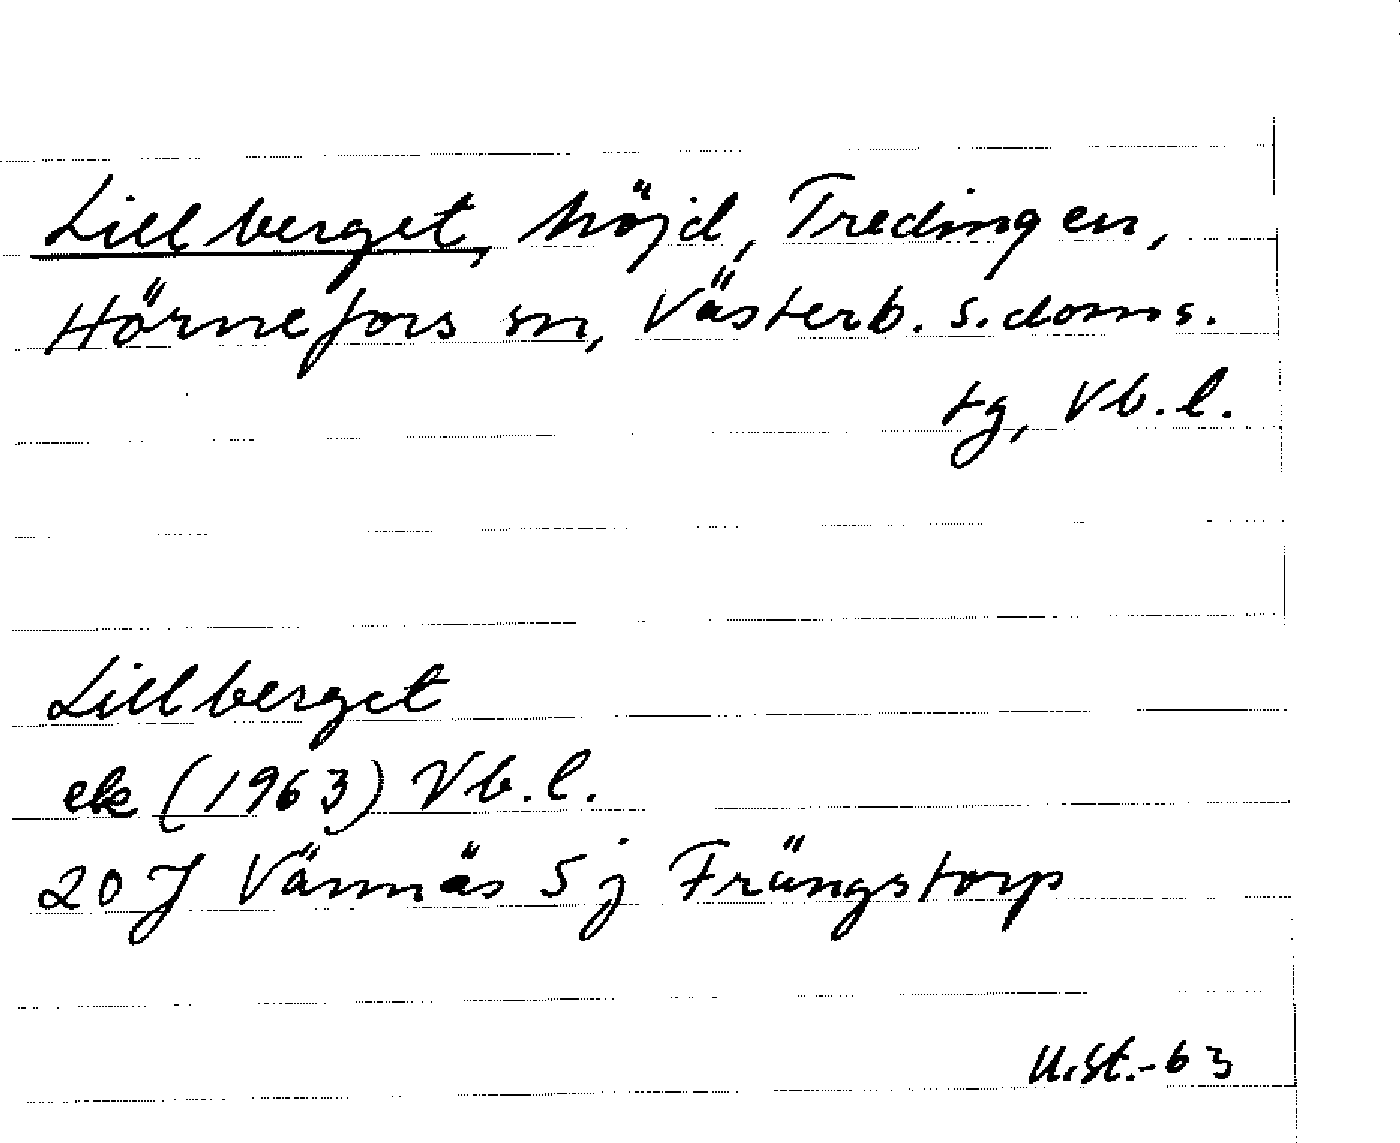 Lillberget, höjd, Tredingen,
Hörnefors sn, Västerb. s. doms.
tg, Vb. l.
Lillberget
ek (1963) Vb. l.
20 J Vännäs 5 j Frängstorp
U. St. - 63